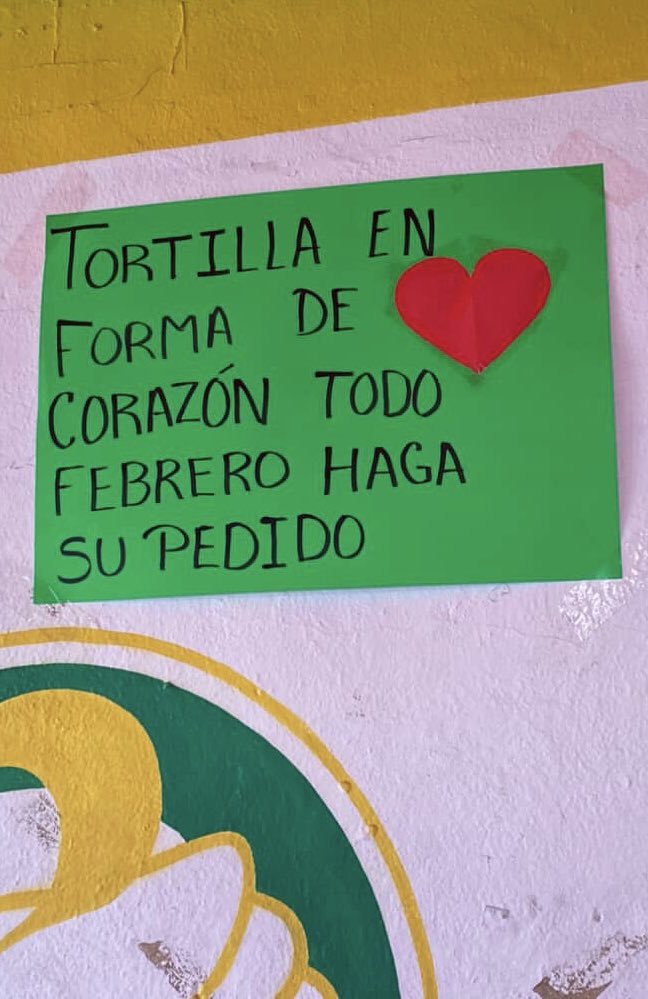 TORTILLA EN
FORMA DE
CORAZÓN TODO
FEBRERO HAGA
SU PEDIDO